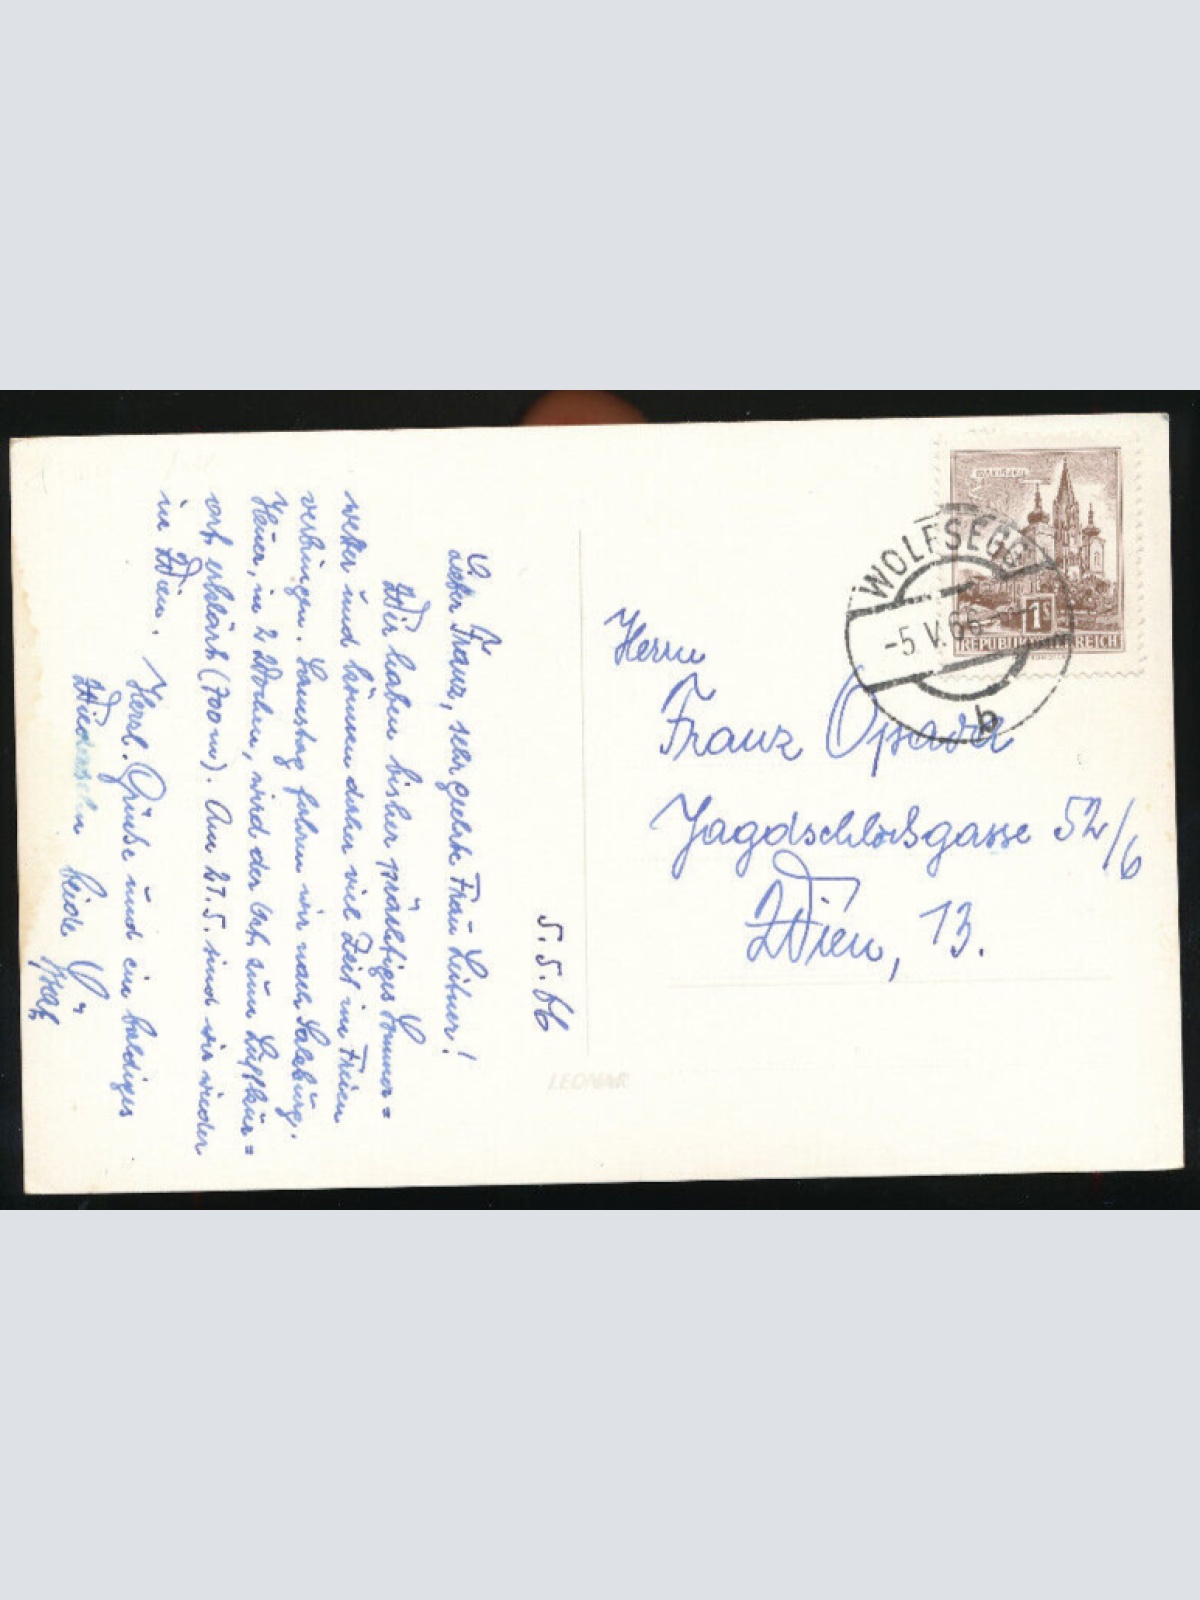 5.5.66
Lieber Franz, sehr geehrte Frau Leitner!
Wir haben bisher prächtiges Sommer=
wetter und können daher viel Zeit im Freien
verbringen. Samstag fahren wir nach Salzburg.
Heuer, in 2 Wochen, wird der Ort zum Luftkur=
ort erklärt (700 m). Am 21.5. sind wir wieder
in Wien.
Herzl. Grüße und ein baldiges
Wiedersehn beide
LEONAR
MARIAZELL
1 S
REPUBLIK ÖSTERREICH
WOLFSEGG
-5.V.66
b
Herrn
Franz Opava
Jagdschloßgasse 52/6
Wien, 13.